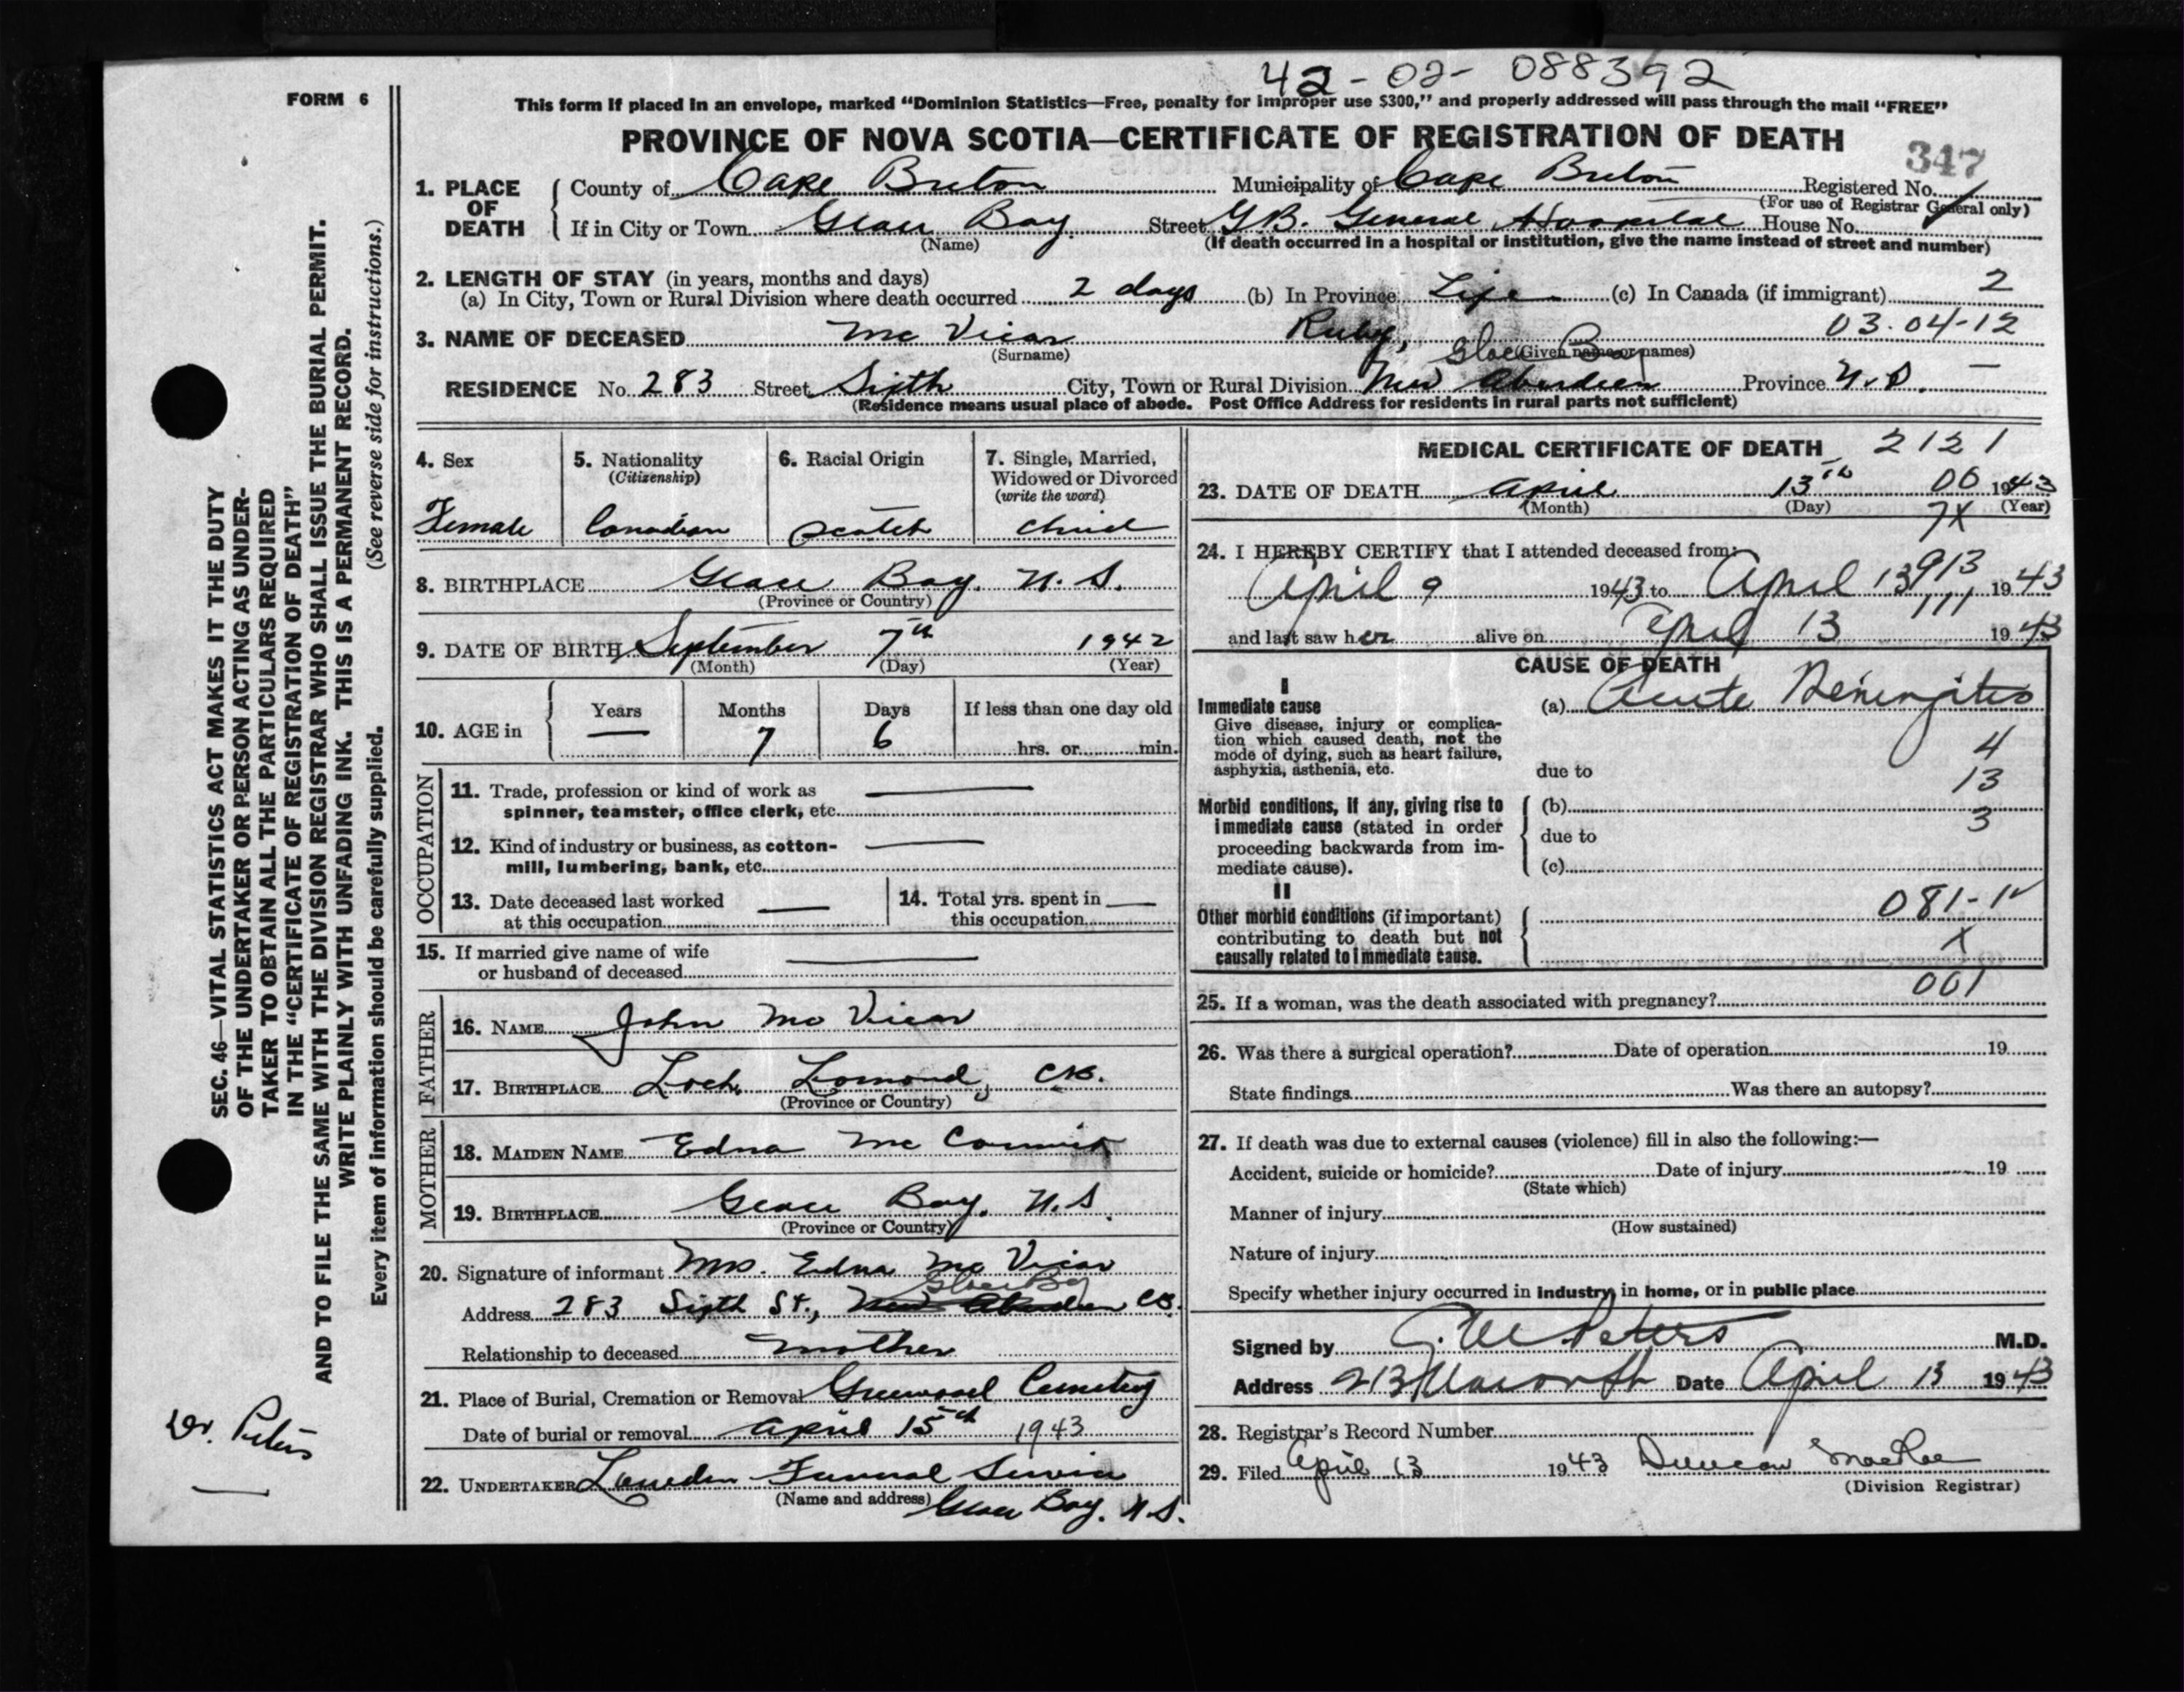 42-02-088392
FORM 6
This form if placed in an envelope, marked "Dominion Statistics—Free, penalty for improper use $300," and properly addressed will pass through the mail "FREE"
PROVINCE OF NOVA SCOTIA—CERTIFICATE OF REGISTRATION OF DEATH
347
1. PLACE OF DEATH County of Cape Breton Municipality of Cape Breton Registered No.
(For use of Registrar General only)
If in City or Town Glace Bay Street G.B. General Hospital House No.
(Name) (If death occurred in a hospital or institution, give the name instead of street and number)
2. LENGTH OF STAY (in years, months and days)
(a) In City, Town or Rural Division where death occurred 2 days (b) In Province Life (c) In Canada (if immigrant) 2
03.04-12
3. NAME OF DECEASED Mc Vicar Ruby,
(Surname) (Given name or names)
Glace Bay
RESIDENCE No. 283 Street Sixth City, Town or Rural Division New Aberdeen Province N.S. —
(Residence means usual place of abode. Post Office Address for residents in rural parts not sufficient)
4. Sex
Female
5. Nationality
(Citizenship)
Canadian
6. Racial Origin
Scotch
7. Single, Married,
Widowed or Divorced
(write the word)
Child
8. BIRTHPLACE Glace Bay. N.S.
(Province or Country)
9. DATE OF BIRTH September 7th 1942
(Month) (Day) (Year)
10. AGE in Years Months Days If less than one day old
— 7 6 hrs. or min.
OCCUPATION
11. Trade, profession or kind of work as
spinner, teamster, office clerk, etc. —
12. Kind of industry or business, as cotton-
mill, lumbering, bank, etc. —
13. Date deceased last worked
at this occupation —
14. Total yrs. spent in
this occupation —
15. If married give name of wife
or husband of deceased —
FATHER
16. NAME John Mc Vicar
17. BIRTHPLACE Loch Lomond, C.B.
(Province or Country)
MOTHER
18. MAIDEN NAME Edna Mc
19. BIRTHPLACE Glace Bay. N.S.
(Province or Country)
20. Signature of informant Mrs. Edna Mc Vicar
Glace Bay
Address 283 Sixth St., New Aberdeen C.B.
Relationship to deceased Mother
21. Place of Burial, Cremation or Removal Greenwood Cemetery
Date of burial or removal April 15th 1943
22. UNDERTAKER Funeral Service
(Name and address) Glace Bay. N.S.
MEDICAL CERTIFICATE OF DEATH 2121
23. DATE OF DEATH April 13th 00 1943
(Month) (Day) (Year)
7X
24. I HEREBY CERTIFY that I attended deceased from:
913
April 9 1943 to April 13 1943
111
and last saw her alive on April 13 1943
CAUSE OF DEATH
I
Immediate cause
Give disease, injury or complica-
tion which caused death, not the
mode of dying, such as heart failure,
asphyxia, asthenia, etc.
(a) Acute Meningitis
4
due to
13
Morbid conditions, if any, giving rise to
immediate cause (stated in order
proceeding backwards from im-
mediate cause).
(b)
3
due to
(c)
II
Other morbid conditions (if important)
contributing to death but not
causally related to immediate cause.
081-1
X
001
25. If a woman, was the death associated with pregnancy?
26. Was there a surgical operation? Date of operation 19
State findings Was there an autopsy?
27. If death was due to external causes (violence) fill in also the following:—
Accident, suicide or homicide? Date of injury 19
(State which)
Manner of injury
(How sustained)
Nature of injury
Specify whether injury occurred in industry, in home, or in public place
Signed by Peters M.D.
Address Date April 13 1943
28. Registrar's Record Number
29. Filed April 13 1943 Duncan MacRae
(Division Registrar)
SEC. 46—VITAL STATISTICS ACT MAKES IT THE DUTY
OF THE UNDERTAKER OR PERSON ACTING AS UNDER-
TAKER TO OBTAIN ALL THE PARTICULARS REQUIRED
IN THE "CERTIFICATE OF REGISTRATION OF DEATH"
AND TO FILE THE SAME WITH THE DIVISION REGISTRAR WHO SHALL ISSUE THE BURIAL PERMIT.
WRITE PLAINLY WITH UNFADING INK. THIS IS A PERMANENT RECORD.
Every item of information should be carefully supplied. (See reverse side for instructions.)
Dr. Peters